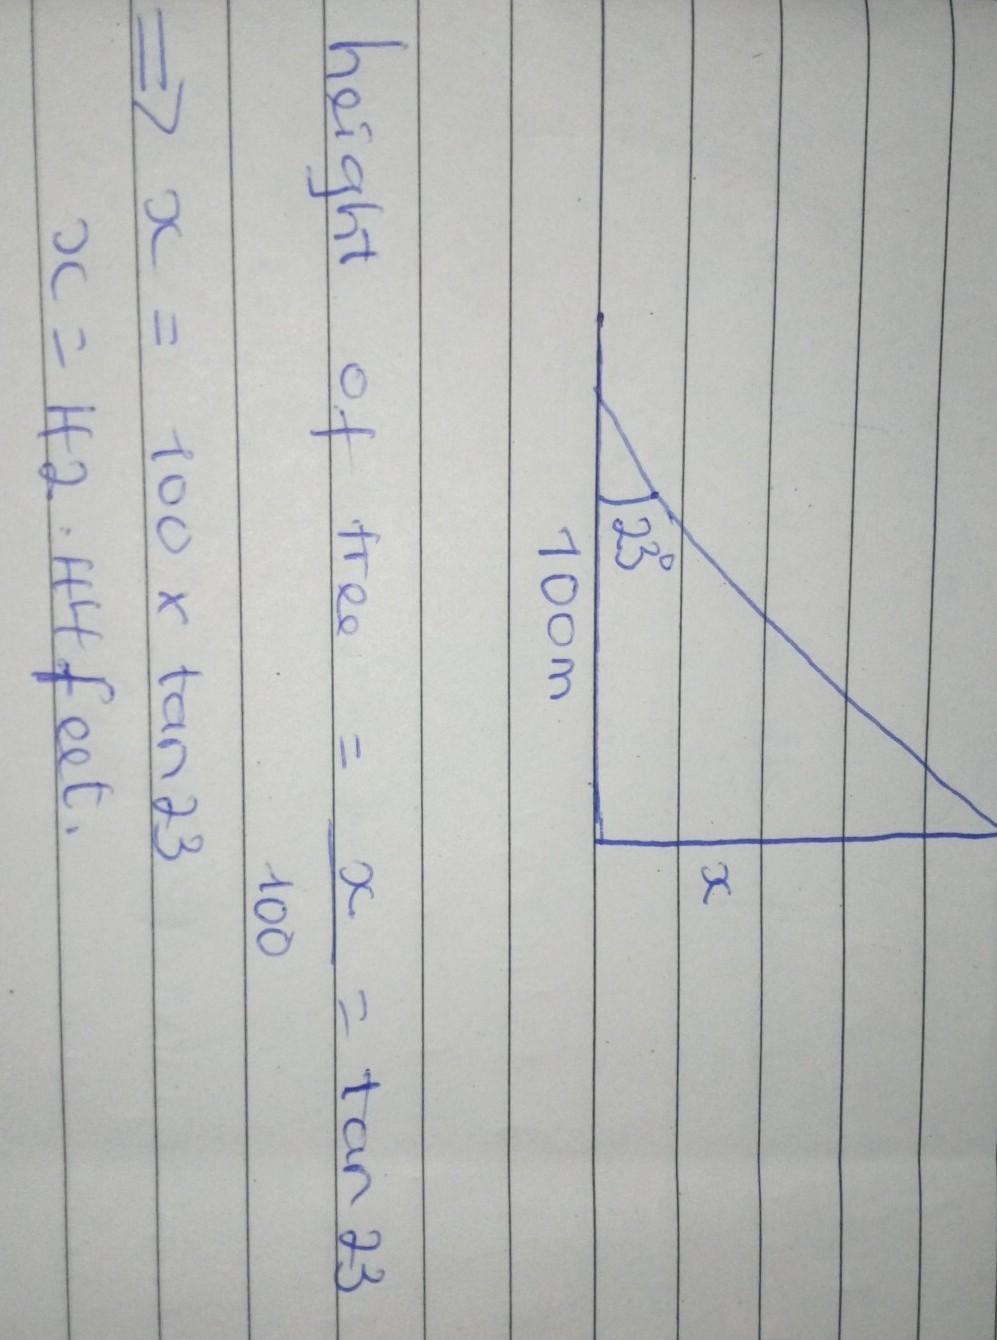 23°
100m
x
height of tree = x = tan 23
100
=> x = 100 x tan 23
x = 42.44 feet.